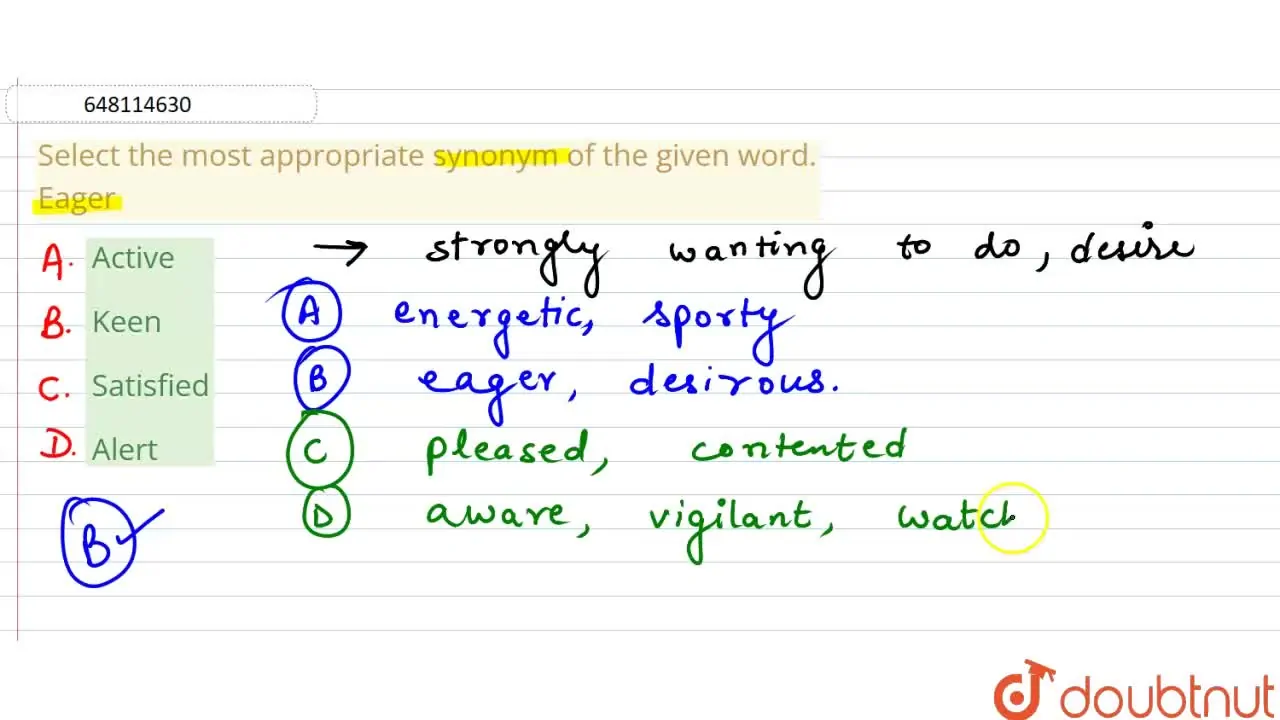 648114630
Select the most appropriate synonym of the given word.
Eager
→ strongly wanting to do, desire
A. Active
B. Keen
C. Satisfied
D. Alert
A energetic, sporty
B eager, desirous.
C pleased, contented
D aware, vigilant, watch
B ✓
doubtnut